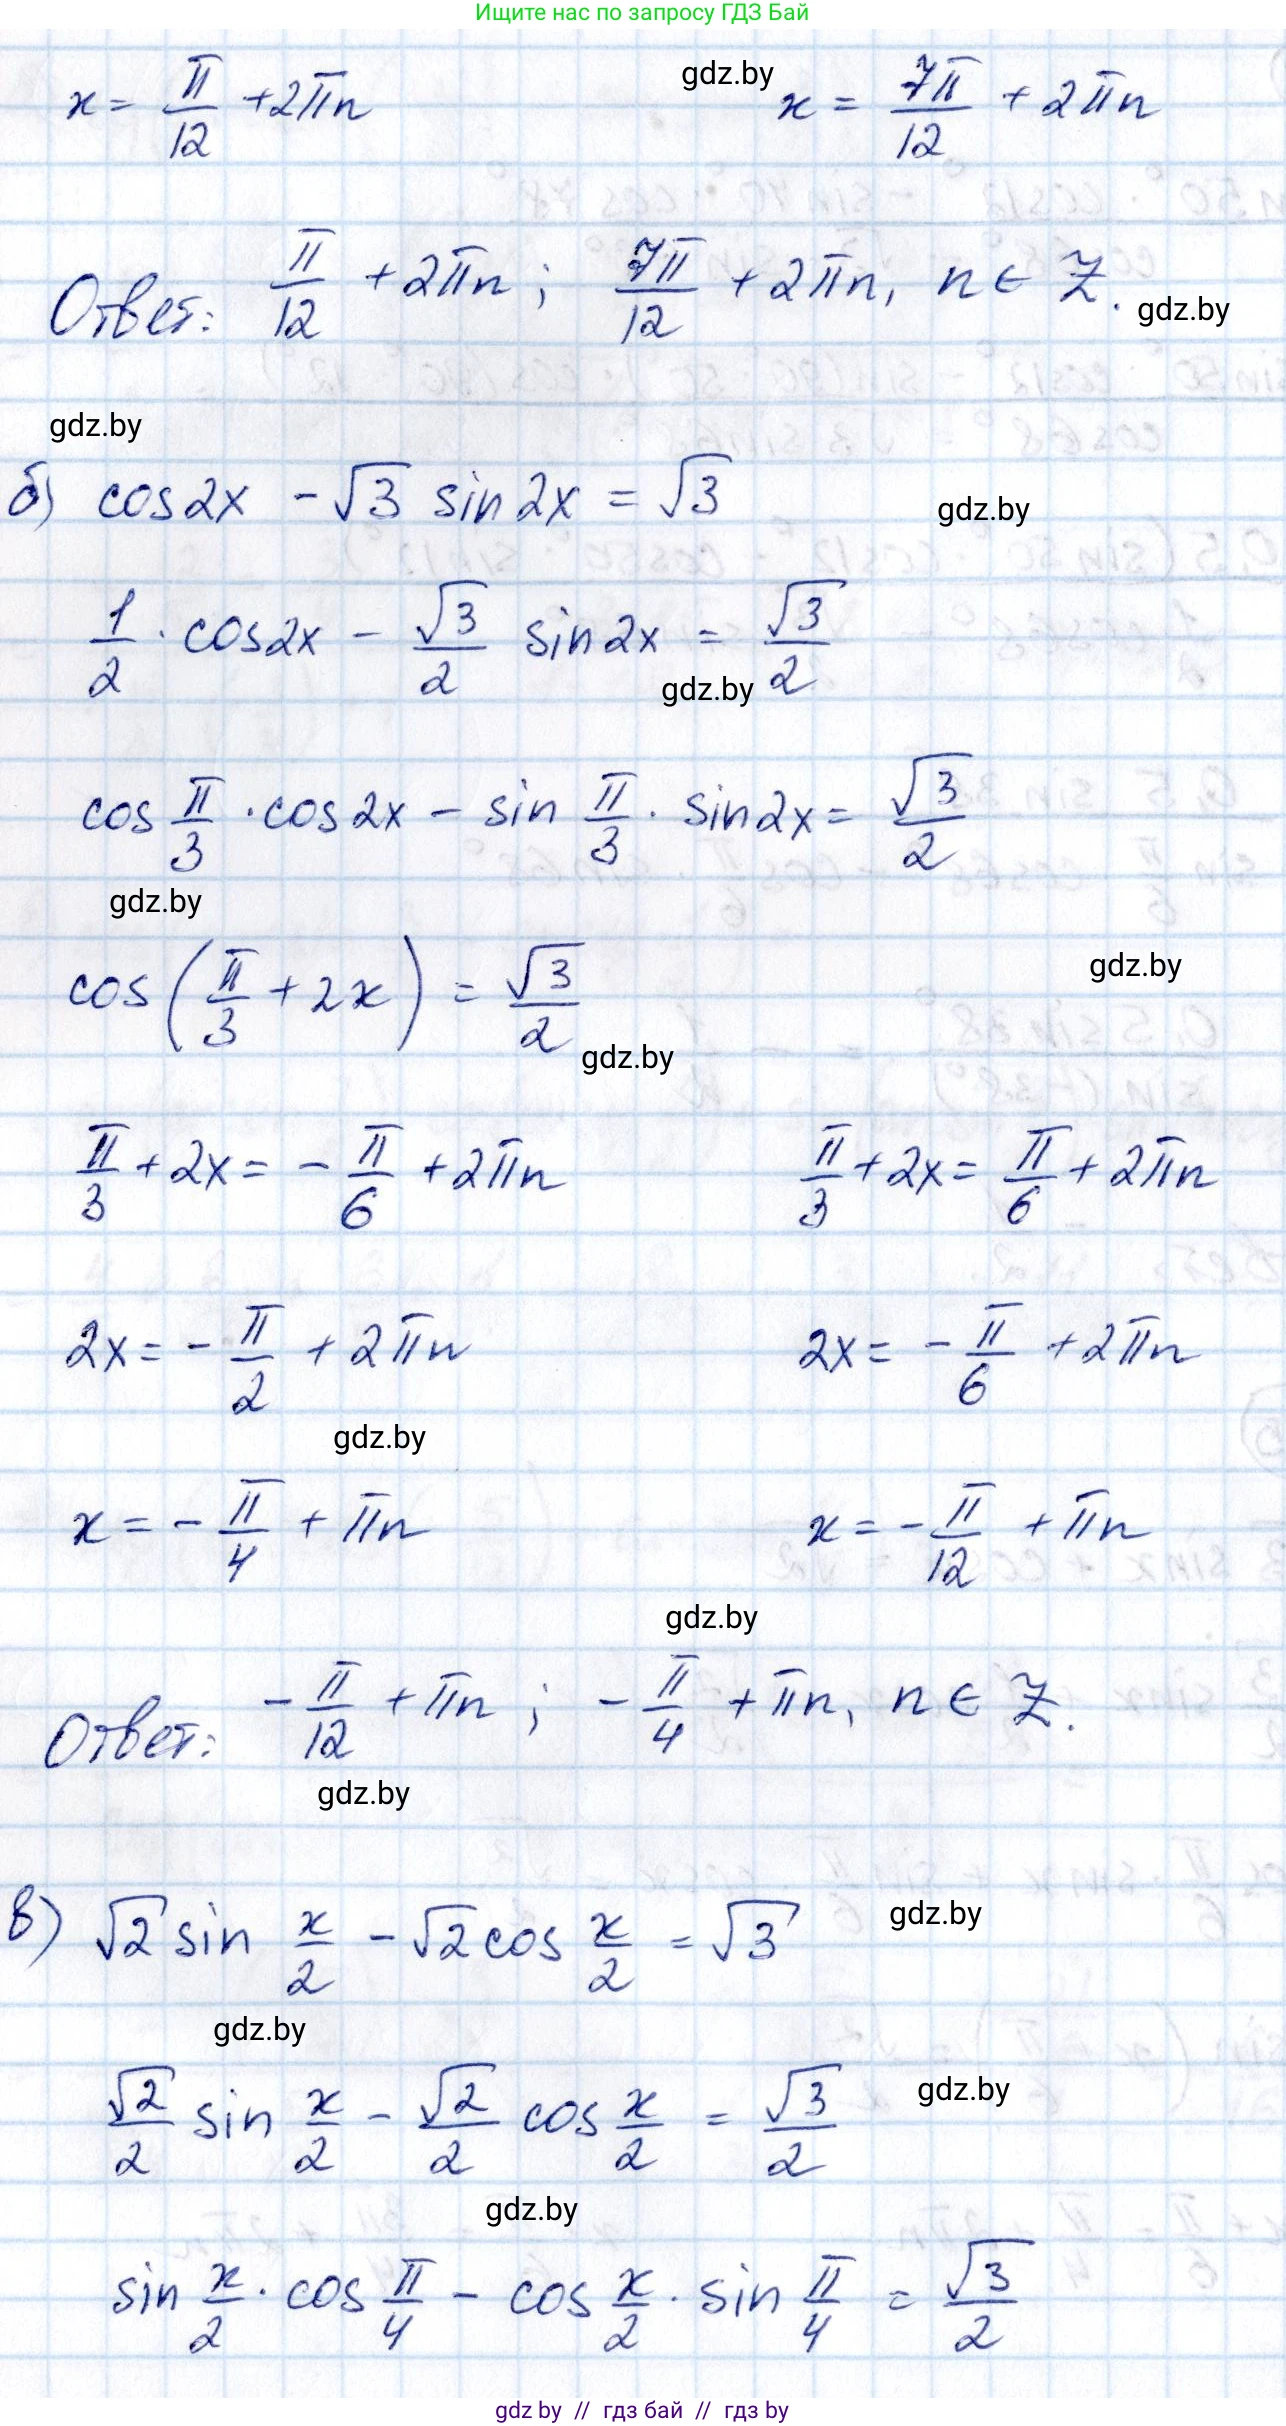 Ищите нас по запросу ГДЗ Бай
x = π/12 + 2πn    gdz.by    x = 7π/12 + 2πn
Ответ: π/12 + 2πn ; 7π/12 + 2πn, n ∈ Z.
gdz.by
gdz.by
б) cos2x - √3 sin2x = √3
gdz.by
1/2 · cos2x - √3/2 sin2x = √3/2
gdz.by
cos π/3 · cos2x - sin π/3 · sin2x = √3/2
gdz.by
gdz.by
cos(π/3 + 2x) = √3/2
gdz.by
π/3 + 2x = - π/6 + 2πn    π/3 + 2x = π/6 + 2πn
2x = - π/2 + 2πn    2x = - π/6 + 2πn
gdz.by
x = - π/4 + πn    x = - π/12 + πn
gdz.by
Ответ: - π/12 + πn ; - π/4 + πn, n ∈ Z.
gdz.by
в) √2 sin x/2 - √2 cos x/2 = √3    gdz.by
gdz.by
√2/2 sin x/2 - √2/2 cos x/2 = √3/2    gdz.by
gdz.by
sin x/2 · cos π/4 - cos x/2 · sin π/4 = √3/2
gdz by // гдз бай // gdz by